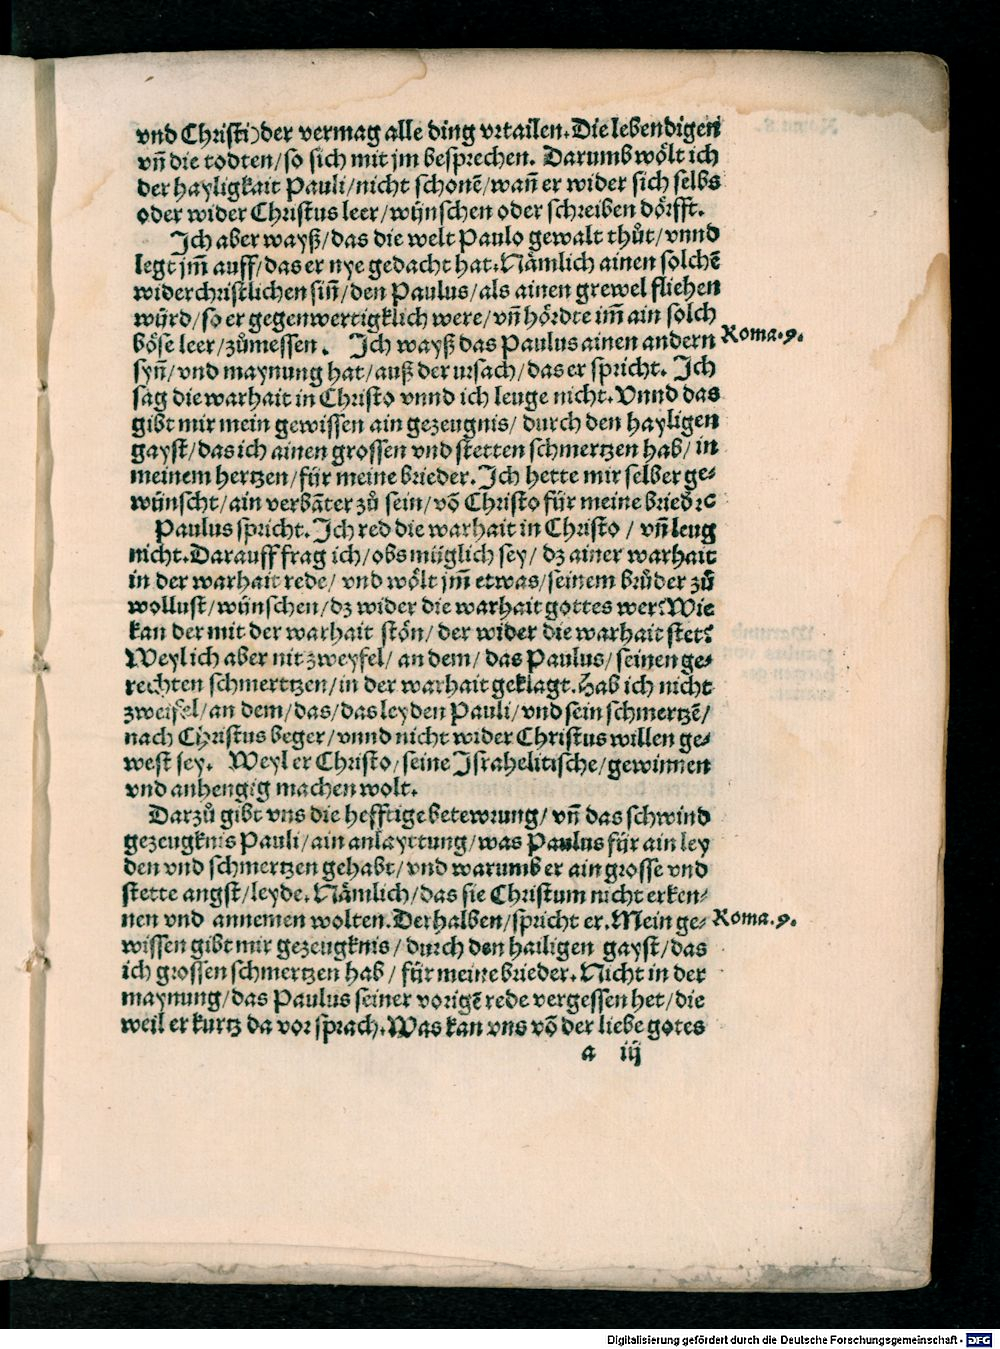 vnd Christi) der vermag alle ding vrtailen. Die lebendigen
vñ die todten / so sich mit jm besprechen. Darumb wölt ich
der hayligkait Pauli / nicht schonē / wañ er wider sich selbs
oder wider Christus leer / wünschen oder schreiben dörfft.
Ich aber wayß / das die welt Paulo gewalt thůt / vnnd
legt jm̄ auff / das er nye gedacht hat. Nämlich ainen solchē
widerchristlichen siñ / den Paulus / als ainen grewel fliehen
würd / so er gegenwertigklich were / vñ hördte im̄ ain solch
böse leer / zůmessen. Ich wayß das Paulus ainen andern
Roma. 9.
syñ / vnd maynung hat / auß der vrsach / das er spricht. Ich
sag die warhait in Christo vnnd ich leuge nicht. Vnnd das
gibt mir mein gewissen ain gezeugnis / durch den hayligen
gayst / das ich ainen grossen vnd stetten schmertzen hab / in
meinem hertzen / für meine brieder. Ich hette mir selber ge⸗
wünscht / ain verbāter zů sein / vō Christo für meine briedꝛc
Paulus spricht. Ich red die warhait in Christo / vñ leug
nicht. Darauff frag ich / obs müglich sey / dz ainer warhait
in der warhait rede / vnd wölt jm̄ etwas / seinem brůder zů
wollust / wünschen / dz wider die warhait gottes wer? Wie
kan der mit der warhait stōn / der wider die warhait stet?
Weyl ich aber nit zweyfel / an dem / das Paulus / seinen ge⸗
rechten schmerttzen / in der warhait geklagt. Hab ich nicht
zweifel / an dem / das / das leyden Pauli / vnd sein schmertzē /
nach Christus beger / vnnd nicht wider Christus willen ge⸗
west sey. Weyl er Christo / seine Israhelitische / gewinnen
vnd anhengig machen wolt.
Darzů gibt vns die hefftige betewrung / vñ das schwind
gezeugknis Pauli / ain anlayttung / was Paulus für ain ley
den vnd schmertzen gehabt / vnd warumb er ain grosse vnd
stette angst / leyde. Nämlich / das sie Christum nicht erken⸗
nen vnd annemen wolten. Derhalben / spricht er. Mein ge⸗
Roma. 9.
wissen gibt mir gezeugknis / durch den hailigen gayst / das
ich grossen schmertzen hab / für meine brieder. Nicht in der
maynung / das Paulus seiner vorigē rede vergessen het / die
weil er kurtz da vor sprach. Was kan vns vō der liebe gotes
a iij
Digitalisierung gefördert durch die Deutsche Forschungsgemeinschaft - DFG